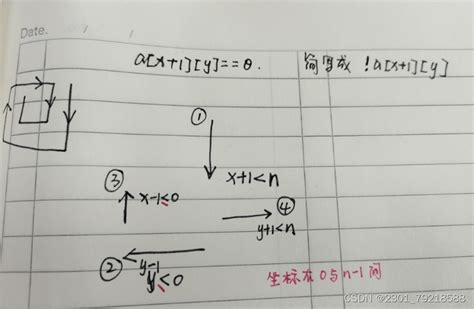 Date.
a[x+1][y]==0. 简写成 !a[x+1][y]
①
③ x-1≤0
x+1<n
④
y+1<n
② y-1
y≤0
坐标在0与n-1间
CSDN @2301_79218688